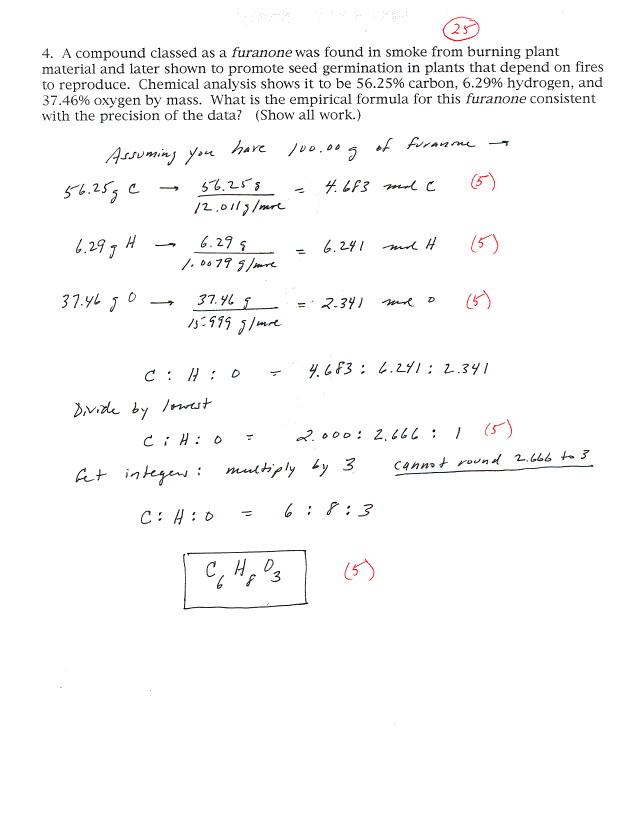 25
4. A compound classed as a furanone was found in smoke from burning plant
material and later shown to promote seed germination in plants that depend on fires
to reproduce. Chemical analysis shows it to be 56.25% carbon, 6.29% hydrogen, and
37.46% oxygen by mass. What is the empirical formula for this furanone consistent
with the precision of the data? (Show all work.)
Assuming you have 100.00 g of furanone →
56.25g C → 56.25 g / 12.011 g/mole = 4.683 mol C (5)
6.29 g H → 6.29 g / 1.0079 g/mole = 6.241 mol H (5)
37.46 g O → 37.46 g / 15.999 g/mole = 2.341 mole O (5)
C : H : O = 4.683 : 6.241 : 2.341
Divide by lowest
C : H : O = 2.000 : 2.666 : 1 (5)
Get integers : multiply by 3 cannot round 2.666 to 3
C : H : O = 6 : 8 : 3
C6H8O3 (5)